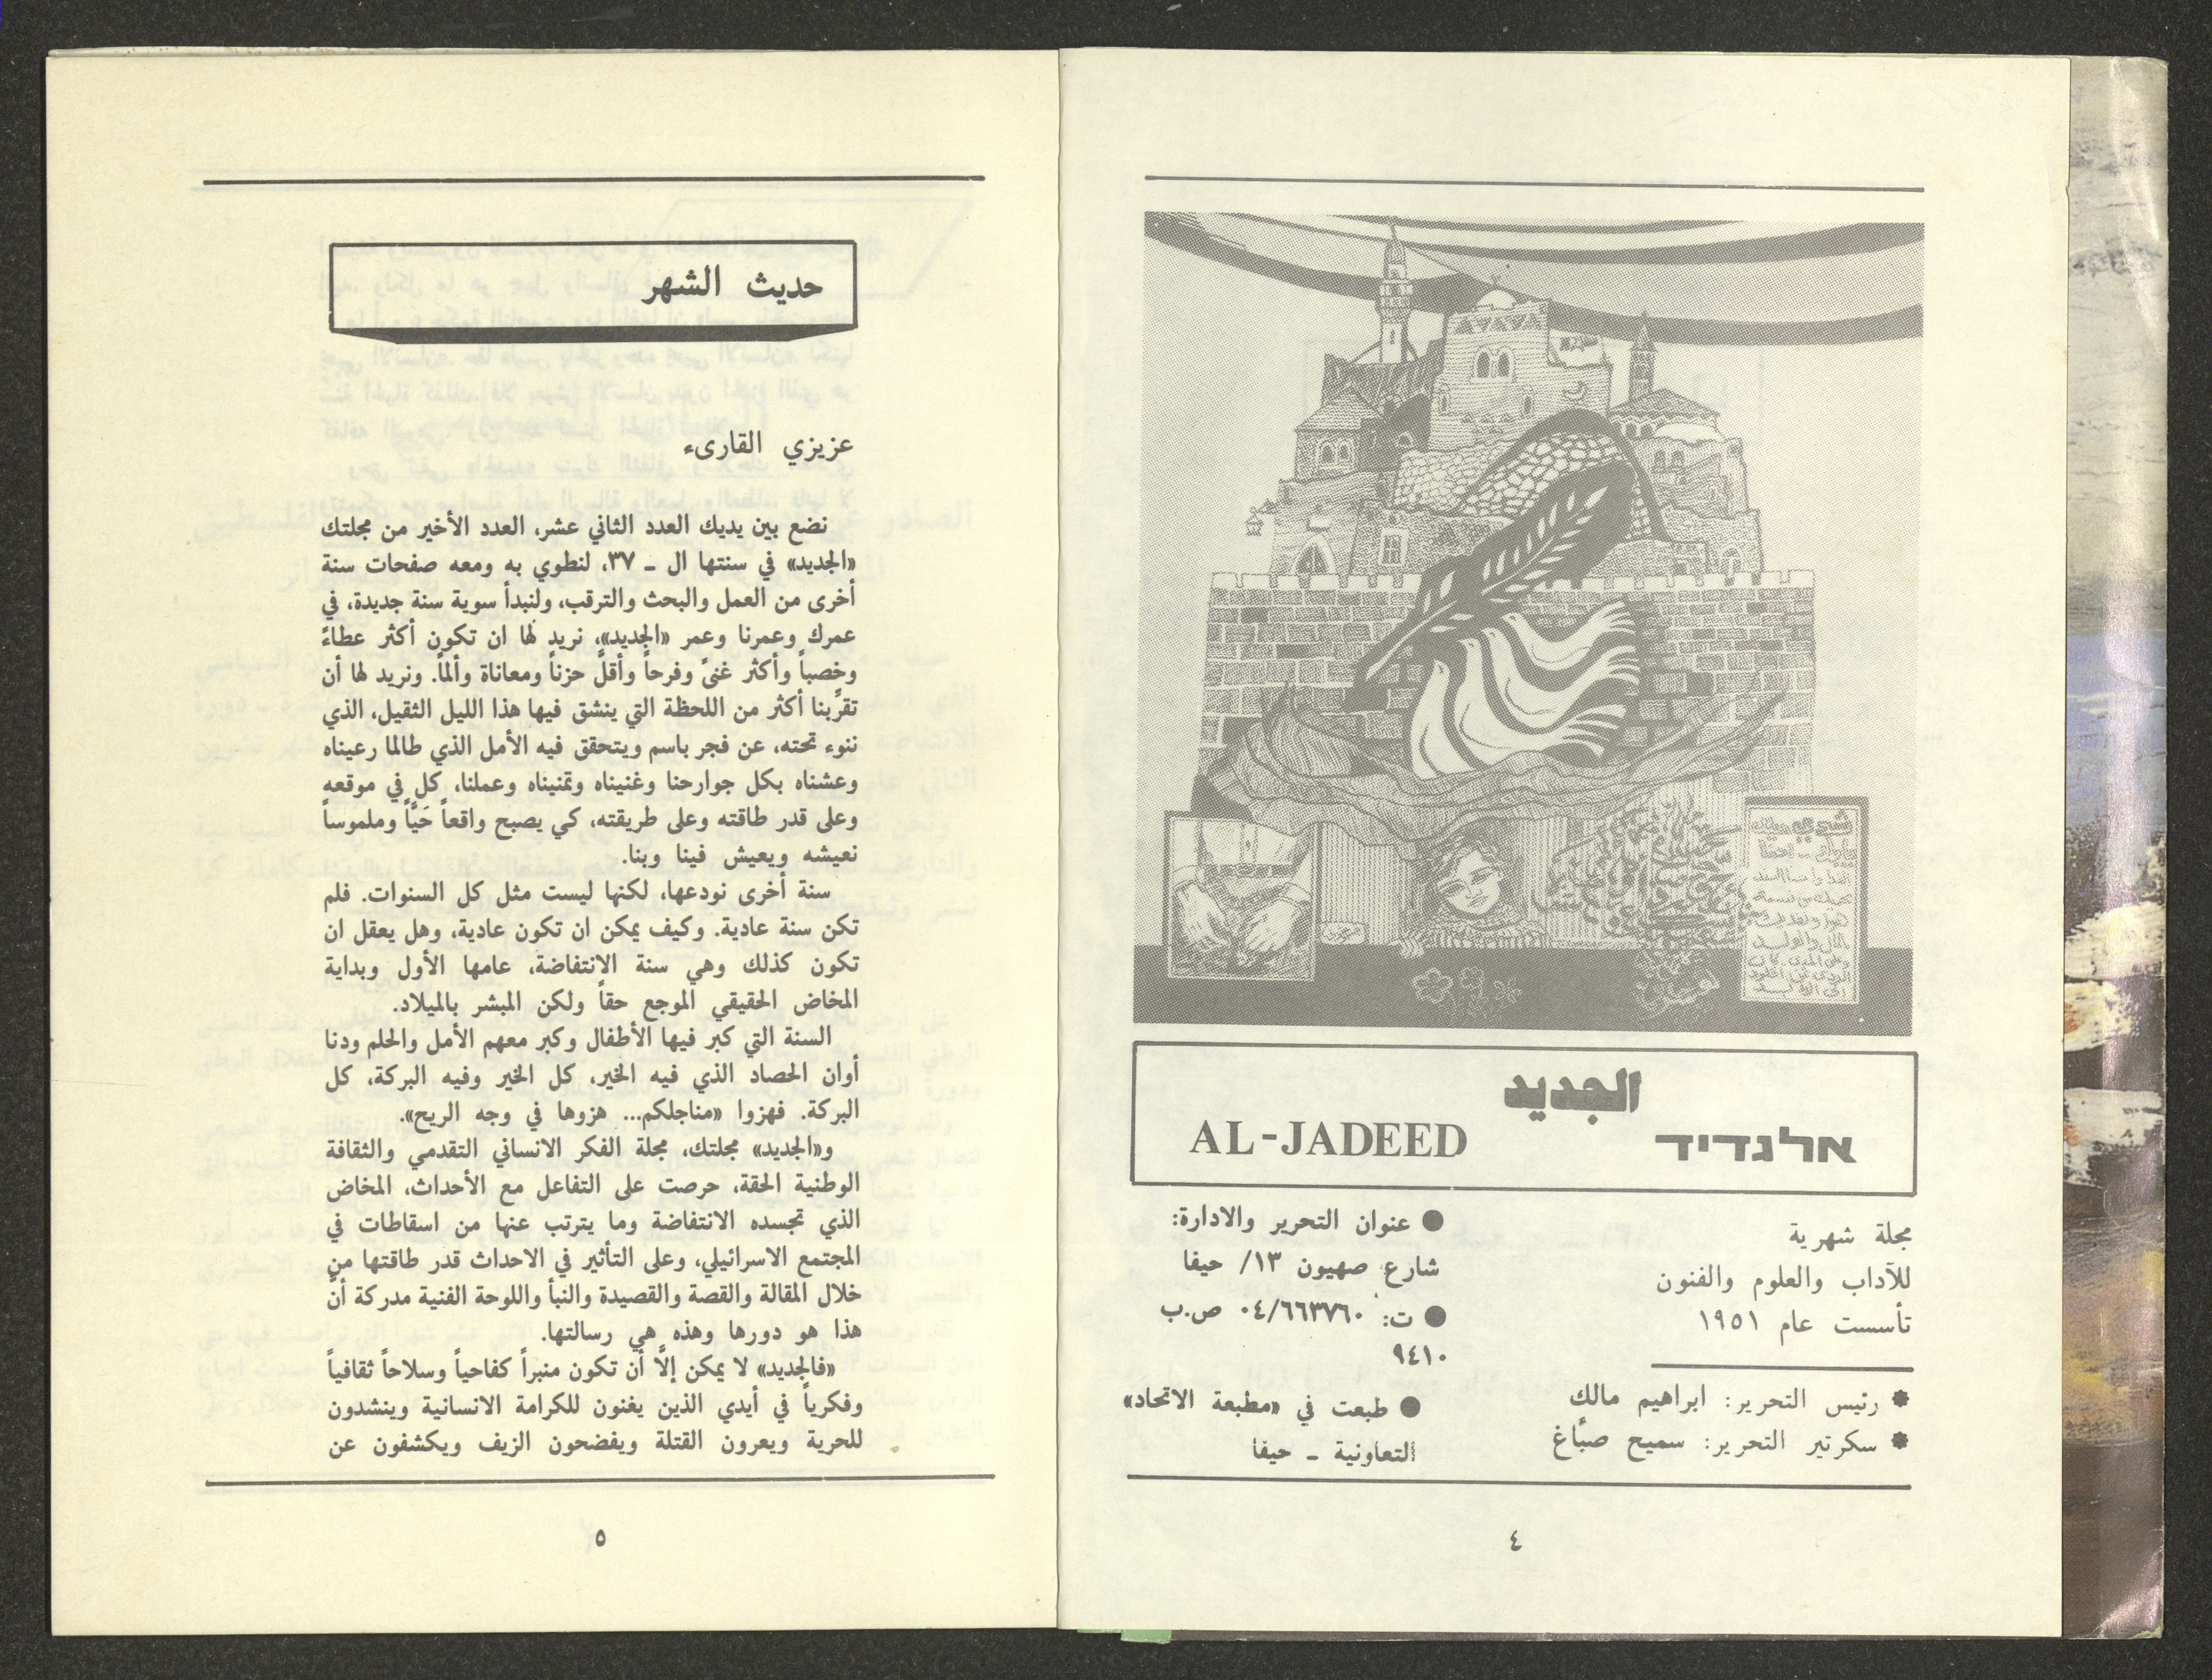 الجديد
אלגדיד
AL-JADEED
مجلة شهرية
للآداب والعلوم والفنون
تأسست عام ١٩٥١
* رئيس التحرير: ابراهيم مالك
* سكرتير التحرير: سميح صبّاغ
● عنوان التحرير والادارة:
شارع صهيون ١٣/ حيفا
● ت: ٠٤/٦٦٣٧٦٠ ص.ب
٩٤١٠
● طبعت في «مطبعة الاتحاد»
التعاونية ـ حيفا
٤
حديث الشهر
عزيزي القارىء
نضع بين يديك العدد الثاني عشر، العدد الأخير من مجلتك
«الجديد» في سنتها ال ـ ٣٧، لنطوي به ومعه صفحات سنة
أخرى من العمل والبحث والترقب، ولنبدأ سوية سنة جديدة، في
عمرك وعمرنا وعمر «الجديد»، نريد لها ان تكون أكثر عطاءً
وخصباً وأكثر غنىً وفرحاً وأقلّ حزناً ومعاناة وألماً. ونريد لها أن
تقرّبنا أكثر من اللحظة التي ينشق فيها هذا الليل الثقيل، الذي
ننوء تحته، عن فجر باسم ويتحقق فيه الأمل الذي طالما رعيناه
وعشناه بكل جوارحنا وغنيناه وتمنيناه وعملنا، كل في موقعه
وعلى قدر طاقته وعلى طريقته، كي يصبح واقعاً حَيّاً وملموساً
نعيشه ويعيش فينا وبنا.
سنة أخرى نودعها، لكنها ليست مثل كل السنوات. فلم
تكن سنة عادية. وكيف يمكن ان تكون عادية، وهل يعقل ان
تكون كذلك وهي سنة الانتفاضة، عامها الأول وبداية
المخاض الحقيقي الموجع حقاً ولكن المبشر بالميلاد.
السنة التي كبر فيها الأطفال وكبر معهم الأمل والحلم ودنا
أوان الحصاد الذي فيه الخير، كل الخير وفيه البركة، كل
البركة. فهزوا «مناجلكم... هزوها في وجه الريح».
و«الجديد» مجلتك، مجلة الفكر الانساني التقدمي والثقافة
الوطنية الحقة، حرصت على التفاعل مع الأحداث، المخاض
الذي تجسده الانتفاضة وما يترتب عنها من اسقاطات في
المجتمع الاسرائيلي، وعلى التأثير في الاحداث قدر طاقتها من
خلال المقالة والقصة والقصيدة والنبأ واللوحة الفنية مدركة أنّ
هذا هو دورها وهذه هي رسالتها.
«فالجديد» لا يمكن إلاّ أن تكون منبراً كفاحياً وسلاحاً ثقافياً
وفكرياً في أيدي الذين يغنون للكرامة الانسانية وينشدون
للحرية ويعرون القتلة ويفضحون الزيف ويكشفون عن
٥